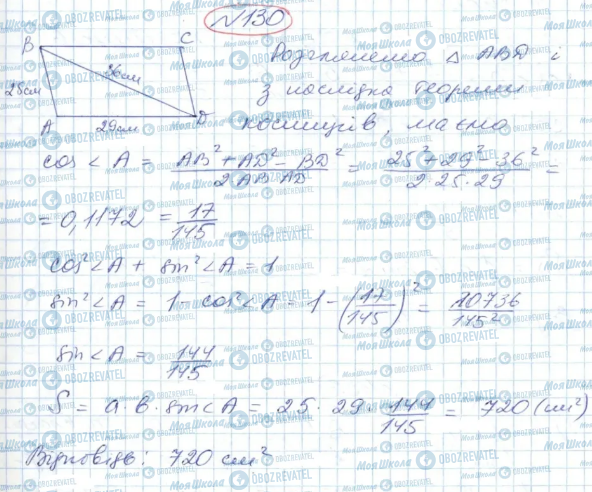 №130
B
C
25см
36см
A
29см
D
Розглянемо △ ABD і
з наслідка теореми
косинусів, маємо
cos<A = AB²+AD²-BD² / 2 AB·AD = 25²+29²-36² / 2·25·29 =
= 0,1172 = 17/145
cos²<A + sin²<A = 1
sin²<A = 1 - cos²<A = 1 - (17/145)² = 20736/145²
sin<A = 144/145
S = a·b·sin<A = 25·29·144/145 = 720 (см²)
Відповідь: 720 см²